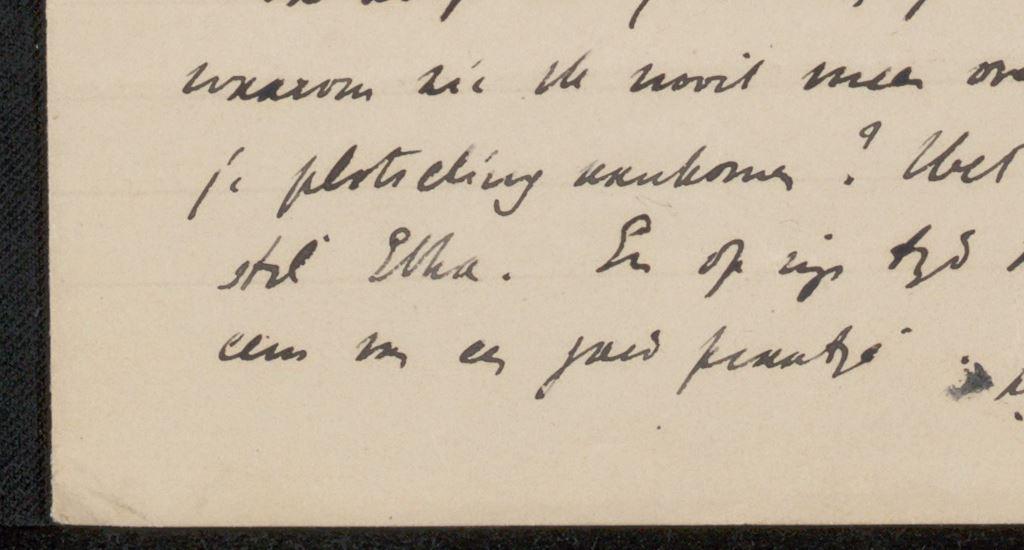 waarom zie ik nooit meer
je plotseling aankomen ? Wel
stil Elka. En op zijn tijd
eens van een goed praatje.